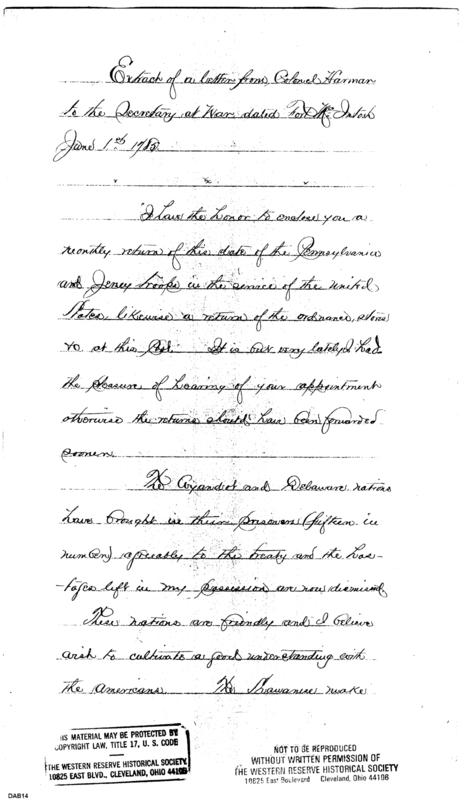 Extract of a letter from Colonel Harmar
to the Secretary at War dated Fort McIntosh
June 1st 1785
I have the honor to enclose you a
monthly return of this date of the Pennsylvania
and Jersey troops in the service of the United
States, likewise a return of the ordnance, stores
&c at this Post. It is but very lately I had
the pleasure of hearing of your appointment
otherwise the returns should have been forwarded
sooner.
The Wyandot and Delaware nations
have brought in their prisoners (fifteen in
number) agreeably to the treaty and the hos-
-tages left in my possession are now dismissed.
These nations are friendly and I believe
wish to cultivate a good understanding with
the Americans. The Shawanese make
THIS MATERIAL MAY BE PROTECTED BY
COPYRIGHT LAW, TITLE 17, U. S. CODE
THE WESTERN RESERVE HISTORICAL SOCIETY
10825 EAST BLVD., CLEVELAND, OHIO 44106
NOT TO BE REPRODUCED
WITHOUT WRITTEN PERMISSION OF
THE WESTERN RESERVE HISTORICAL SOCIETY
10825 East Boulevard Cleveland, Ohio 44106
DAB14